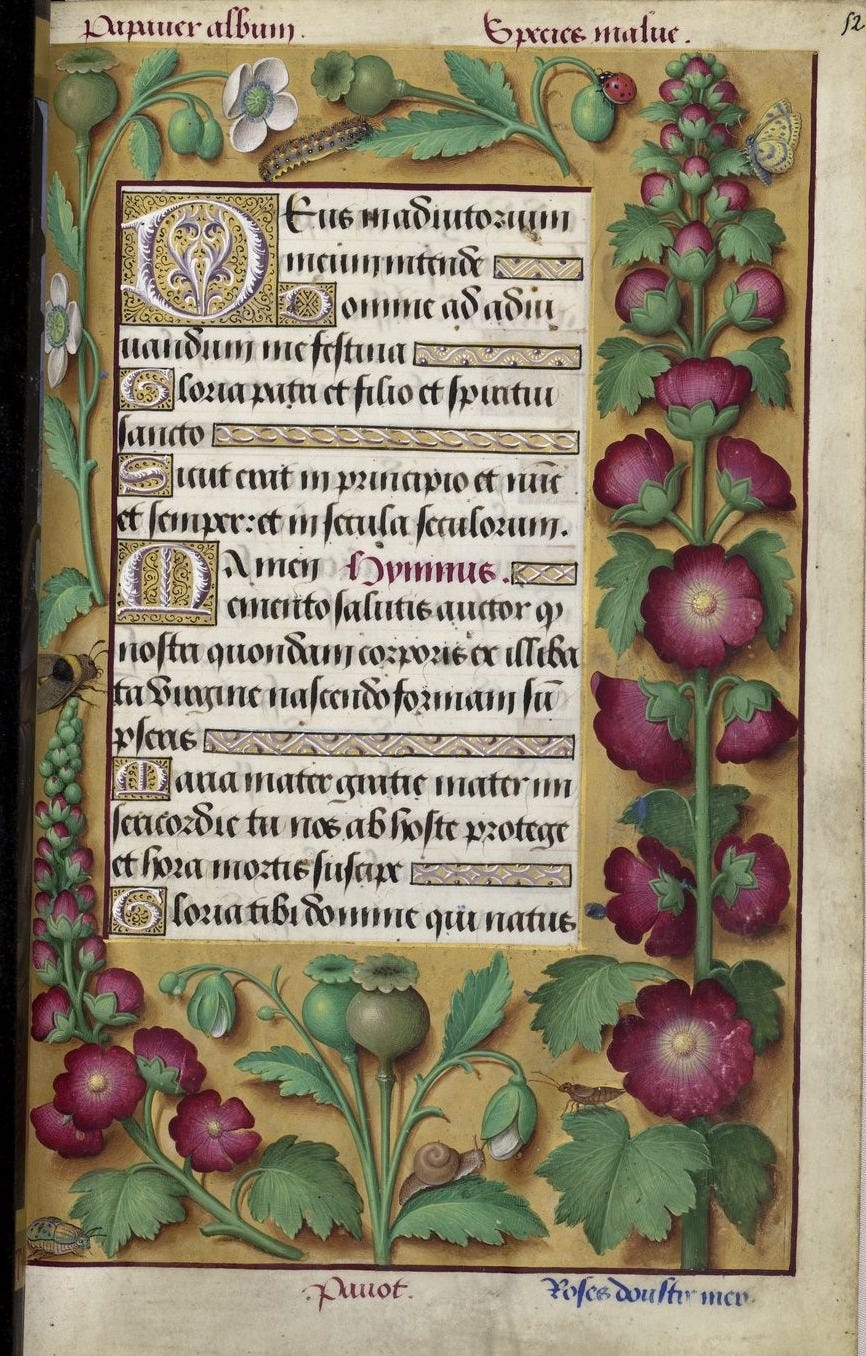 Papauer album.
Species malue.
52
DEus in adiutorium
meum intende
Domine ad adiu
uandum me festina
Gloria patri et filio et spiritui
sancto
Sicut erat in principio et nūc
et semper: et in secula seculorum.
Amen Hymnus.
Memento salutis auctor ꝙ
nostri quondam corporis ex illiba
ta virgine nascendo formam sū
pseris
Maria mater gratie mater mi
sericordie tu nos ab hoste protege
et hora mortis suscipe
Gloria tibi domine qui natus
Pauot.
Roses doultre mer.